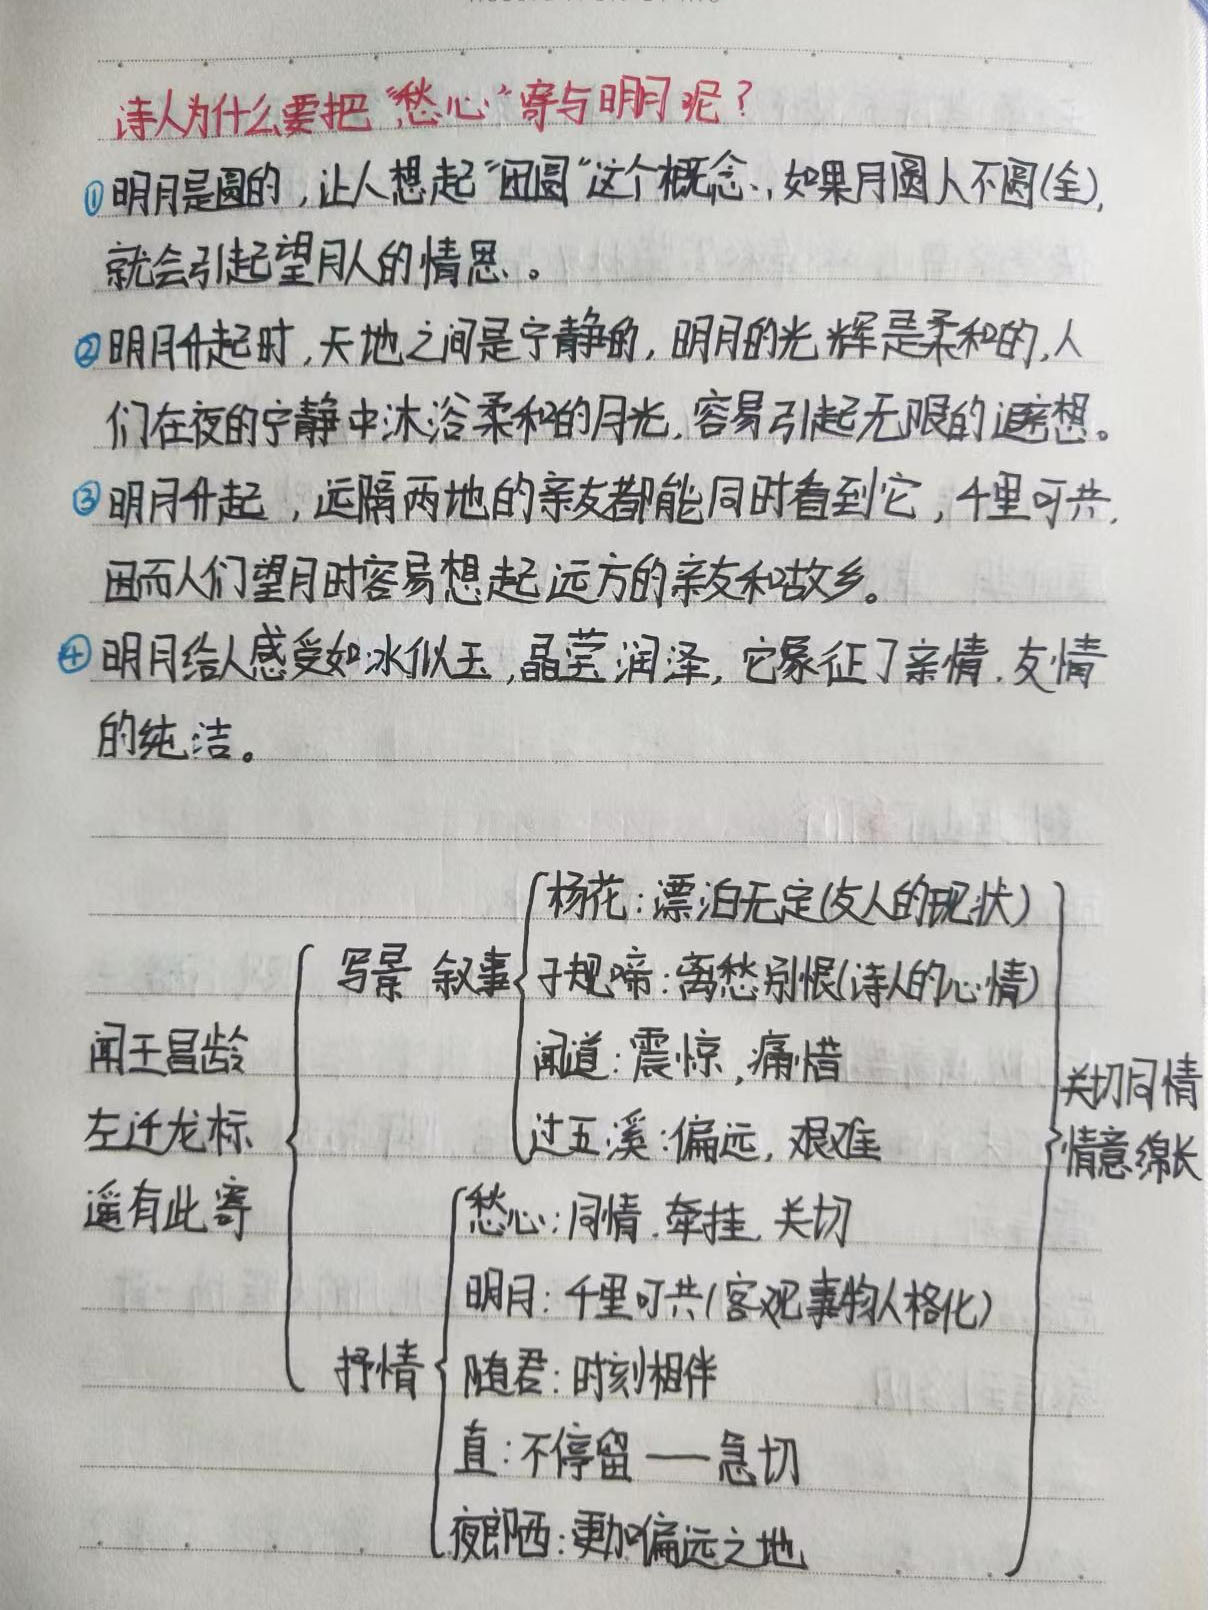 诗人为什么要把“愁心”寄与明月呢？
①明月是圆的，让人想起“团圆”这个概念，如果月圆人不圆(全)，
就会引起望月人的情思。
②明月升起时，天地之间是宁静的，明月的光辉是柔和的，人
们在夜的宁静中沐浴柔和的月光，容易引起无限的遐想。
③明月升起，远隔两地的亲友都能同时看到它，千里可共，
因而人们望月时容易想起远方的亲友和故乡。
④明月给人感受如冰似玉，晶莹润泽，它象征了亲情、友情
的纯洁。
闻王昌龄
左迁龙标
遥有此寄
写景 叙事
杨花：漂泊无定(友人的现状)
子规啼：离愁别恨(诗人的心情)
闻道：震惊，痛惜
过五溪：偏远，艰难
抒情
愁心：同情、牵挂、关切
明月：千里可共(客观事物人格化)
随君：时刻相伴
直：不停留——急切
夜郎西：更加偏远之地
关切同情
情意绵长